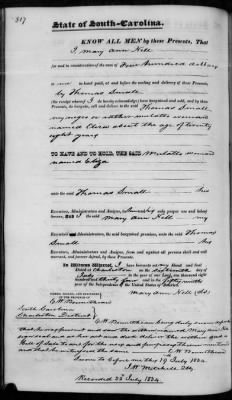 517
State of South-Carolina.
KNOW ALL MEN by these Presents, That
I, Mary Ann Hill
for and in consideration of the sum of Four Hundred dollars
to me in hand paid, at and before the sealing and delivery of these Presents,
by Thomas Small
(the receipt whereof I do hereby acknowledge) have bargained and sold, and by these
Presents, do bargain, sell and deliver to the said Thomas Small
named about the age of twenty
eight years
TO HAVE AND TO HOLD, THE SAID Mulatto woman
named Eliza
unto the said Thomas Small his
Executors, Administrators and Assigns, to his and their only proper use and behoof
forever. AND I the said Mary Ann Hill my
Executors and Administrators, the said bargained premises,
unto the said Thomas
Small his
Executors, Administrators and Assigns, from and against all persons shall and will
warrant, and forever defend by these Presents.
In Witness Whereof, I have hereunto set my Hand and Seal
Dated at Charleston on the
July in the year of our Lord, one thousand eight
hundred and and in the fifty ninth
year of the Independence of the United States of America.
Mary Ann Hill (LS)
SIGNED, SEALED, AND DELIVERED
IN THE PRESENCE OF
South Carolina
Charleston District
being duly sworn
that he was present and saw the within named Mary Ann Hill
sign seal and as her act and deed deliver the within
Bill of Sale
and that he witnessed the same
Sworn to before me this 19 July 1834
J. W. Mitchell
Recorded 23 July 1834